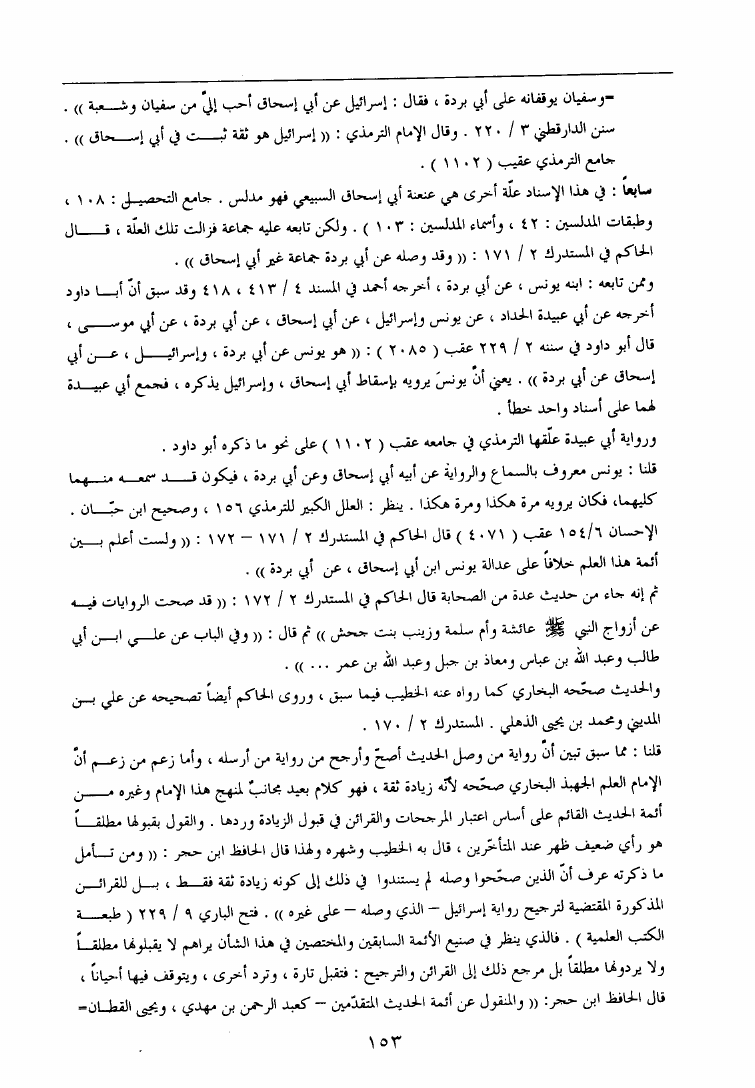 =وسفيان يوقفانه على أبي بردة ، فقال : إسرائيل عن أبي إسحاق أحب إليّ من سفيان وشعبة )) .
سنن الدارقطني ٣ / ٢٢٠ . وقال الإمام الترمذي : (( إسرائيل هو ثقة ثبت في أبي إسحاق )) .
جامع الترمذي عقيب ( ١١٠٢ ) .
سابعاً : في هذا الإسناد علّة أخرى هي عنعنة أبي إسحاق السبيعي فهو مدلس . جامع التحصيل : ١٠٨ ،
وطبقات المدلسين : ٤٢ ، وأسماء المدلسين : ١٠٣ ) . ولكن تابعه عليه جماعة فزالت تلك العلّة ، قال
الحاكم في المستدرك ٢ / ١٧١ : (( وقد وصله عن أبي بردة جماعة غير أبي إسحاق )) .
وممن تابعه : ابنه يونس ، عن أبي بردة ، أخرجه أحمد في المسند ٤ / ٤١٣ ، ٤١٨ وقد سبق أنّ أبا داود
أخرجه عن أبي عبيدة الحداد ، عن يونس وإسرائيل ، عن أبي إسحاق ، عن أبي بردة ، عن أبي موسى ،
قال أبو داود في سننه ٢ / ٢٢٩ عقب ( ٢٠٨٥ ) : (( هو يونس عن أبي بردة ، وإسرائيل ، عن أبي
إسحاق عن أبي بردة )) . يعني أنّ يونسَ يرويه بإسقاط أبي إسحاق ، وإسرائيل يذكره ، فجمع أبي عبيدة
لهما على أسناد واحد خطأ .
ورواية أبي عبيدة علّقها الترمذي في جامعه عقب ( ١١٠٢ ) على نحو ما ذكره أبو داود .
قلنا : يونس معروف بالسماع والرواية عن أبيه أبي إسحاق وعن أبي بردة ، فيكون قد سمعه منهما
كليهما، فكان يرويه مرة هكذا ومرة هكذا . ينظر : العلل الكبير للترمذي ١٥٦ ، وصحيح ابن حبّان .
الإحسان ١٥٤/٦ عقب ( ٤٠٧١ ) قال الحاكم في المستدرك ٢ / ١٧١ – ١٧٢ : (( ولست أعلم بين
أئمة هذا العلم خلافاً على عدالة يونس ابن أبي إسحاق ، عن أبي بردة )) .
ثم إنه جاء من حديث عدة من الصحابة قال الحاكم في المستدرك ٢ / ١٧٢ : (( قد صحت الروايات فيه
عن أزواج النبي ﷺ عائشة وأم سلمة وزينب بنت جحش )) ثم قال : (( وفي الباب عن علي ابن أبي
طالب وعبد الله بن عباس ومعاذ بن جبل وعبد الله بن عمر ... )) .
والحديث صحّحه البخاري كما رواه عنه الخطيب فيما سبق ، وروى الحاكم أيضاً تصحيحه عن علي بن
المديني ومحمد بن يحيى الذهلي . المستدرك ٢ / ١٧٠ .
قلنا : مما سبق تبين أنّ رواية من وصل الحديث أصحّ وأرجح من رواية من أرسله ، وأما زعم من زعم أنّ
الإمام العلم الجهبذ البخاري صحّحه لأنّه زيادة ثقة ، فهو كلام بعيد مجانبٌ لمنهج هذا الإمام وغيره من
أئمة الحديث القائم على أساس اعتبار المرجحات والقرائن في قبول الزيادة وردها . والقول بقبولها مطلقاً
هو رأي ضعيف ظهر عند المتأخّرين ، قال به الخطيب وشهره ولهذا قال الحافظ ابن حجر : (( ومن تأمل
ما ذكرته عرف أنّ الذين صحّحوا وصله لم يستندوا في ذلك إلى كونه زيادة ثقة فقط ، بل للقرائن
المذكورة المقتضية لترجيح رواية إسرائيل – الذي وصله – على غيره )) . فتح الباري ٩ / ٢٢٩ ( طبعة
الكتب العلمية ) . فالذي ينظر في صنيع الأئمة السابقين والمختصين في هذا الشأن يراهم لا يقبلونها مطلقاً
ولا يردونها مطلقاً بل مرجع ذلك إلى القرائن والترجيح : فتقبل تارة ، وترد أخرى ، ويتوقف فيها أحياناً ،
قال الحافظ ابن حجر: (( والمنقول عن أئمة الحديث المتقدّمين – كعبد الرحمن بن مهدي ، ويحيى القطان=
١٥٣